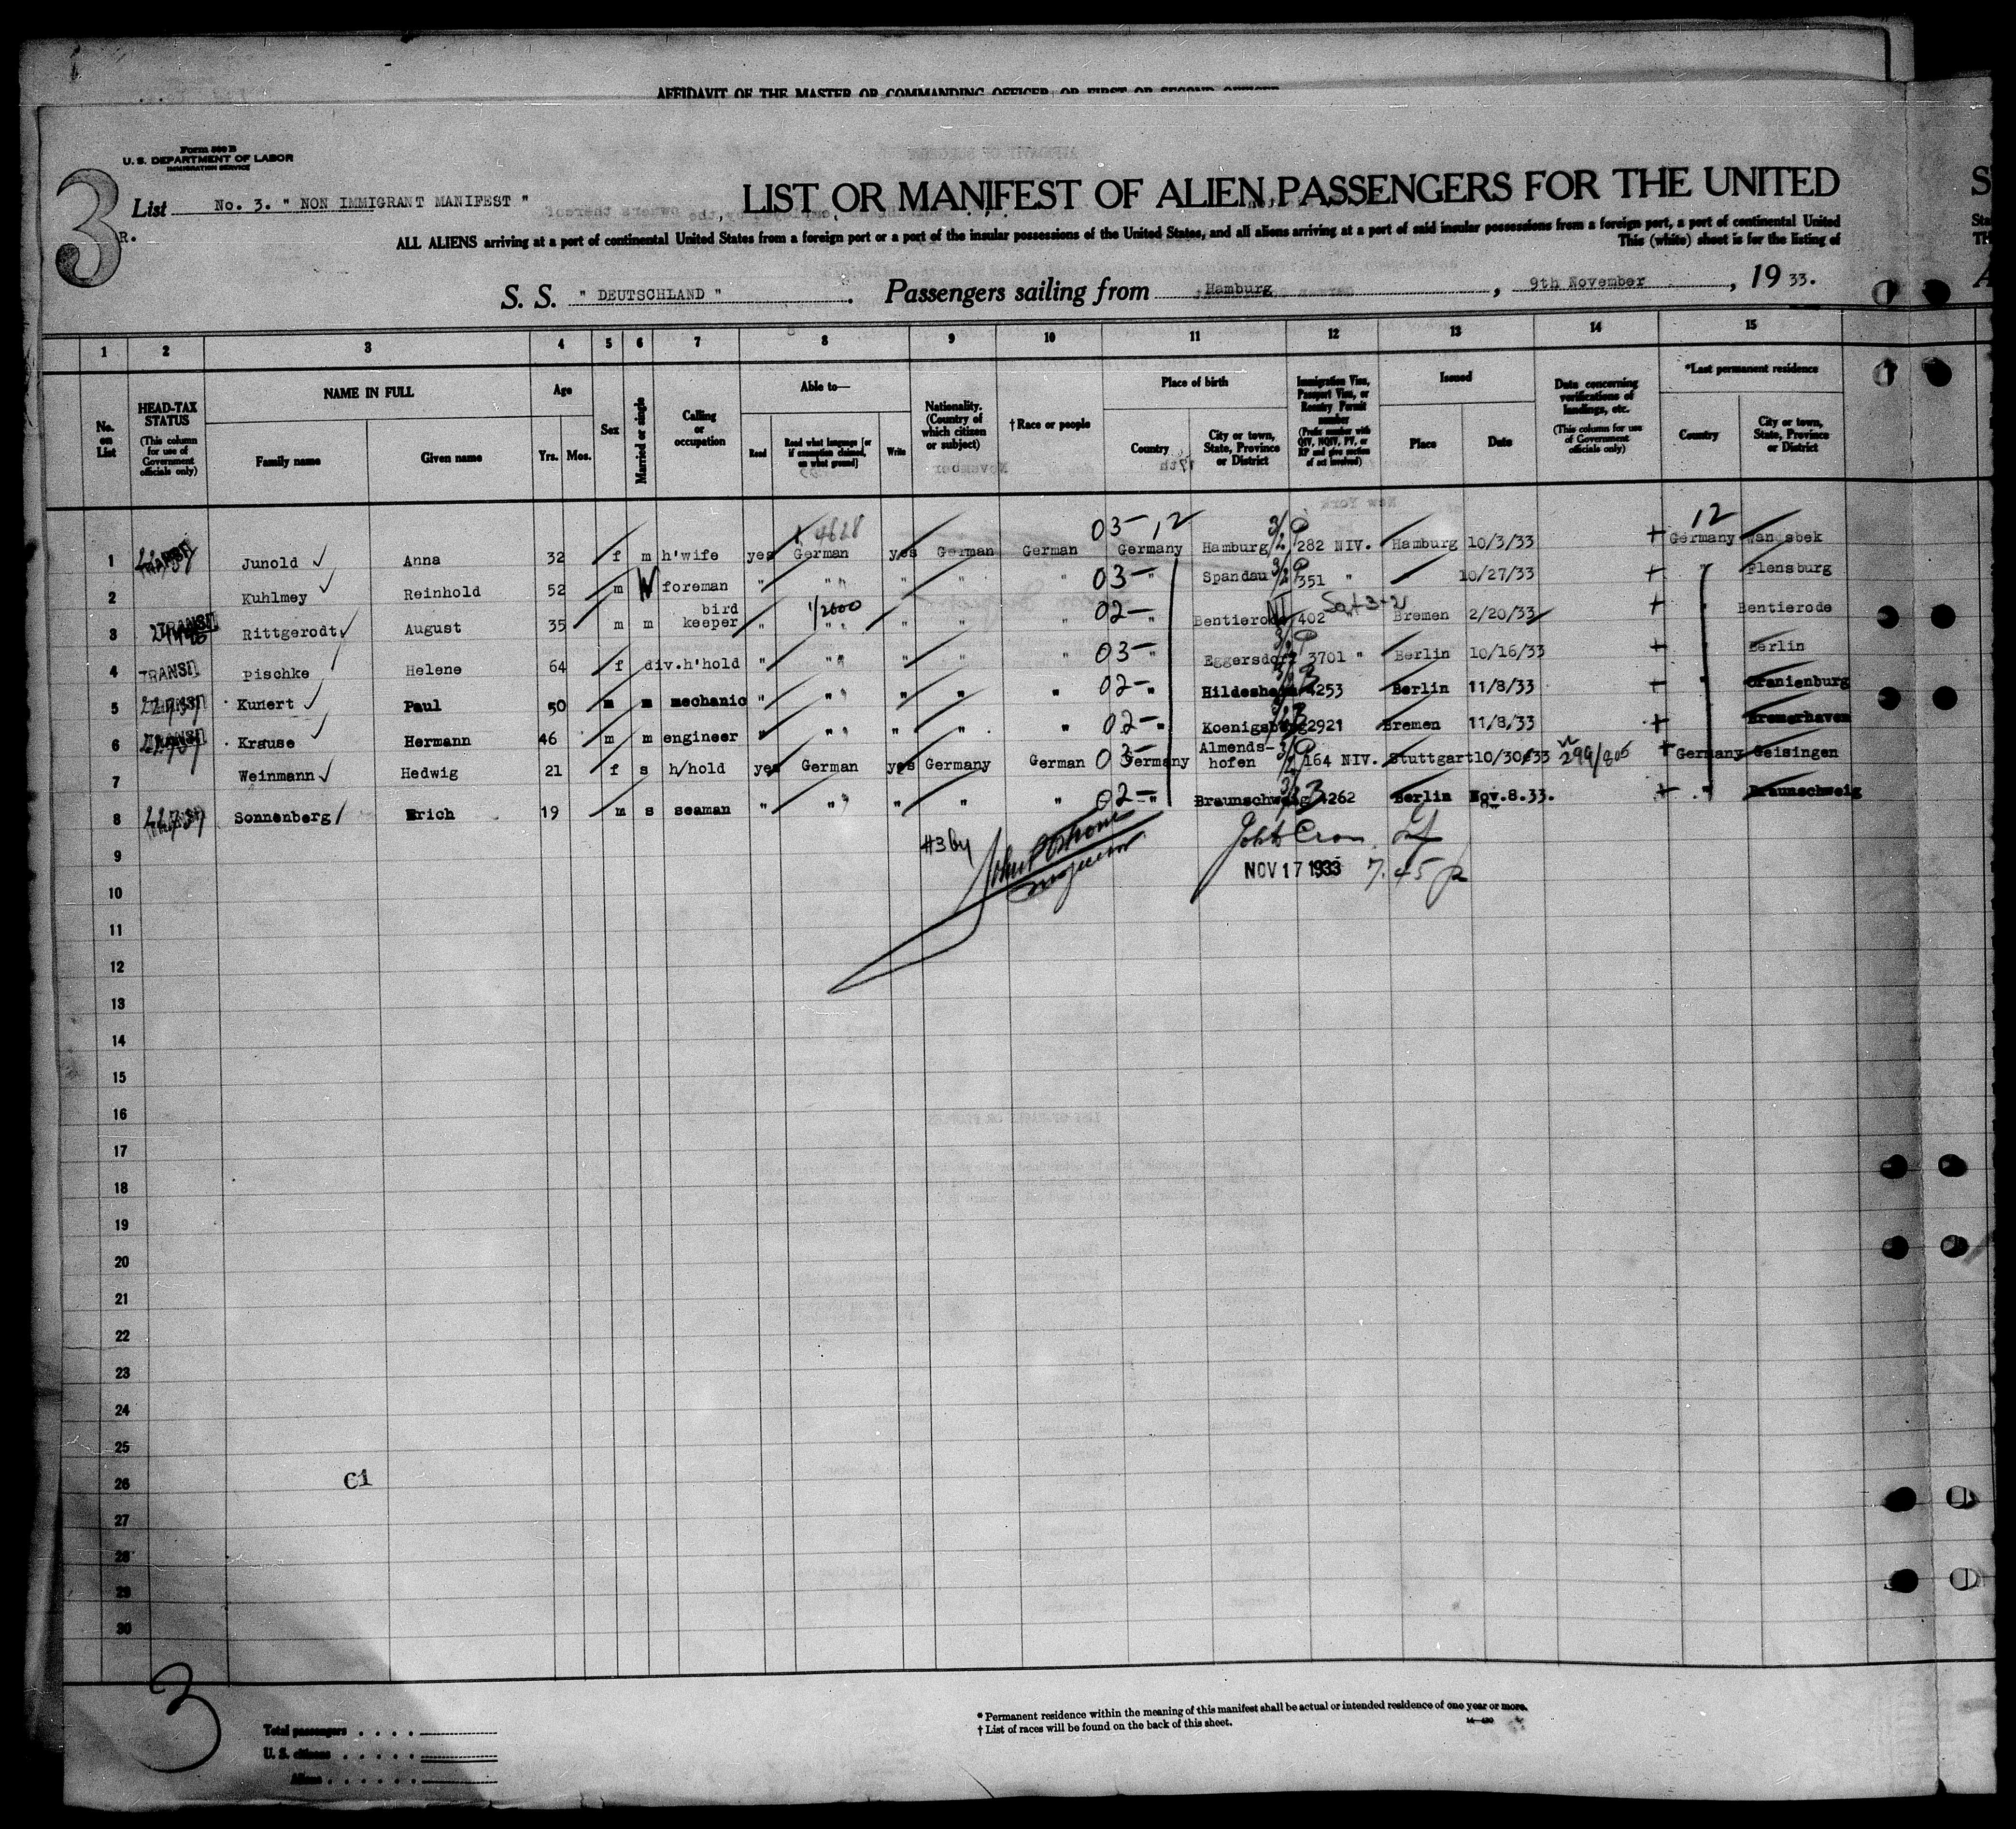 AFFIDAVIT OF THE MASTER OR COMMANDING OFFICER, OR FIRST OR SECOND OFFICER
Form 500 B
U. S. DEPARTMENT OF LABOR
IMMIGRATION SERVICE
3
List No. 3. " NON IMMIGRANT MANIFEST "
R.
LIST OR MANIFEST OF ALIEN PASSENGERS FOR THE UNITED
ALL ALIENS arriving at a port of continental United States from a foreign port or a port of the insular possessions of the United States, and all aliens arriving at a port of said insular possessions from a foreign port, a port of continental United
This (white) sheet is for the listing of
S. S. " DEUTSCHLAND " . Passengers sailing from Hamburg , 9th November , 19 33.
1 2 3 4 5 6 7 8 9 10 11 12 13 14 15
No. on List
HEAD-TAX STATUS (This column for use of Government officials only)
NAME IN FULL
Family name Given name
Age
Yrs. Mos.
Sex
Married or single
Calling or occupation
Able to—
Read Read what language [or if exemption claimed, on what ground] Write
Nationality. (Country of which citizen or subject)
†Race or people
Place of birth
Country City or town, State, Province or District
Immigration Visa, Passport Visa, or Reentry Permit number (Prefix number with QIV, NQIV, PV, or RP and give section of act involved)
Issued
Place Date
Data concerning verifications of landings, etc. (This column for use of Government officials only)
*Last permanent residence
Country City or town, State, Province or District
4628 03- 12 12
1 Junold Anna 32 f m h'wife yes German yes German German Germany Hamburg 3/2 P 282 NIV. Hamburg 10/3/33 + Germany Wandsbek
2 Kuhlmey Reinhold 52 m W foreman " " " " " " 03- " Spandau 3/2 P 351 " 10/27/33 + " Flensburg
3 TRANSIT Rittgerodt August 35 m m bird keeper " 1/2600 " " " " " 02- " Bentierode 402 Bremen 2/20/33 + Bentierode
4 TRANSIT Pischke Helene 64 f div.h'hold " " " " " " 03- " Eggersdorf 3701 " Berlin 10/16/33 + Berlin
5 Kunert Paul 50 m m mechanic " " " " " " 02- " Hildesheim 4253 Berlin 11/8/33 + " Oranienburg
6 Krause Hermann 46 m m engineer " " " " " 02- " Koenigsberg 2921 Bremen 11/8/33 + Bremerhaven
7 Weinmann Hedwig 21 f s h/hold yes German yes Germany German 03- Germany Almends-hofen 3/2 P 164 NIV. Stuttgart 10/30/33 299/805 + Germany Geisingen
8 Sonnenberg Erich 19 m s seaman " " " " " " 02- " Braunschweig 4262 Berlin Nov.8.33. + " Braunschweig
9
#3 by
NOV 17 1933 7.45 p
10
11
12
13
14
15
16
17
18
19
20
21
22
23
24
25
26 C1
27
28
29
30
3
Total passengers . . . .
U. S. citizens . . . . .
Aliens . . . . . .
* Permanent residence within the meaning of this manifest shall be actual or intended residence of one year or more.
† List of races will be found on the back of this sheet.